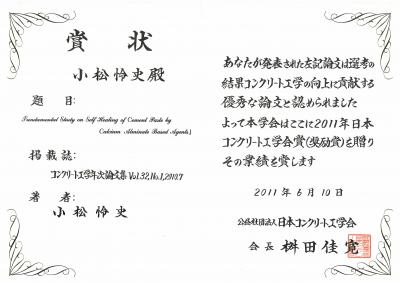 賞状
小松怜史殿
題目:
「Fundamental Study on Self Healing of Cement Paste by
Calcium Aluminate Based Agents」
掲載誌:
コンクリート工学年次論文集 Vol.32,No.1,2010.7
著者:
小松怜史
あなたが発表された左記論文は選考の
結果コンクリート工学の向上に貢献する
優秀な論文と認められました
よって本学会はここに2011年日本
コンクリート工学会賞(奨励賞)を贈り
その業績を賞します
2011年6月10日
公益社団法人日本コンクリート工学会
会長 桝田佳寛